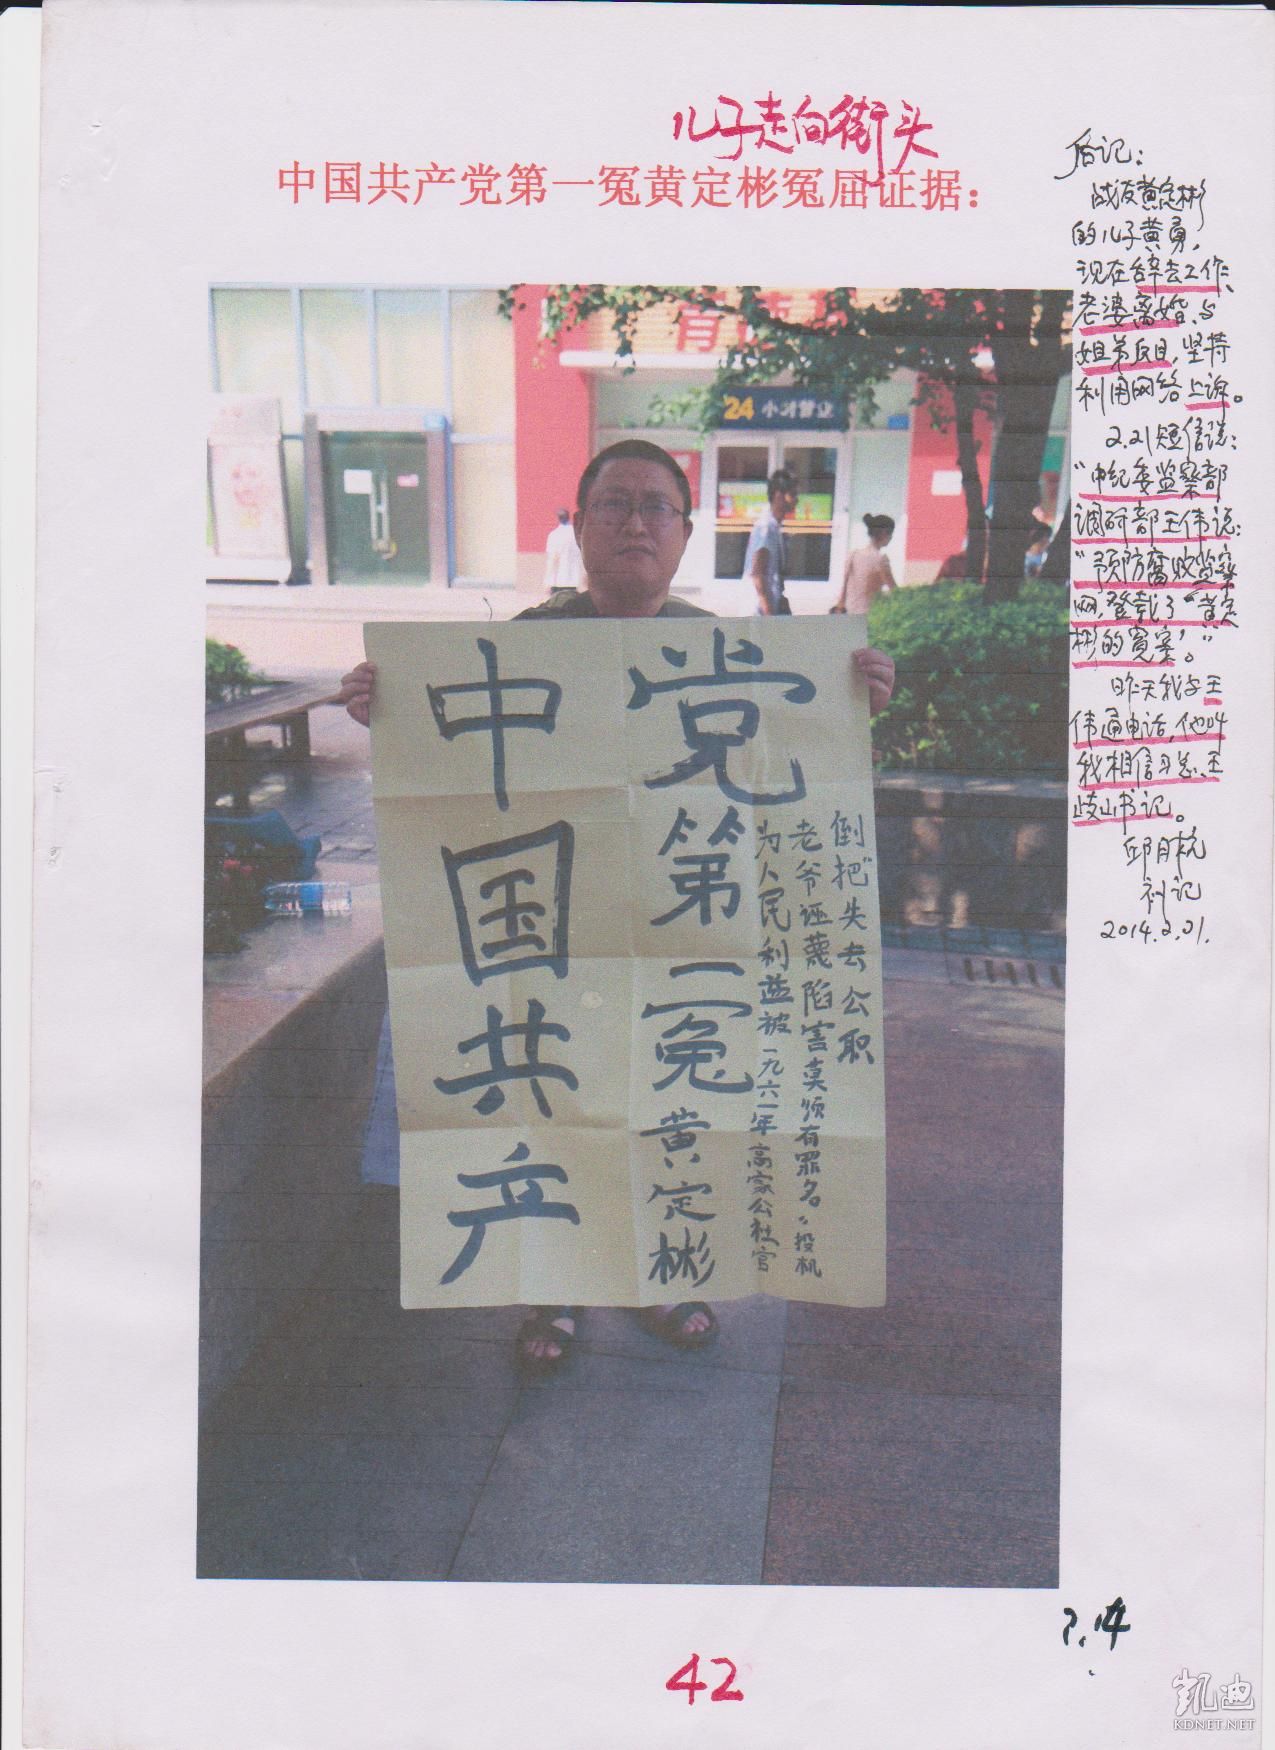 儿子走向街头
中国共产党第一冤黄定彬冤屈证据：
24 小时营业
中国共产
党第一冤黄定彬
为人民利益被一九六一年高家公社官
老爷诬蔑陷害莫须有罪名“投机
倒把”失去公职
后记：
战友黄定彬
的儿子黄勇，
现在辞去工作、
老婆离婚、与
姐弟反目，坚持
利用网络上诉。
2.21短信说：
“中纪委监察部
调研部王伟说：
“预防腐败监察
网，登载了“黄定
彬的冤案”。”
昨天我与王
伟通电话，他叫
我相信习总、王
岐山书记。
邱月杭
补记
2014.2.21.
7.14
42
凯迪
KDNET.NET